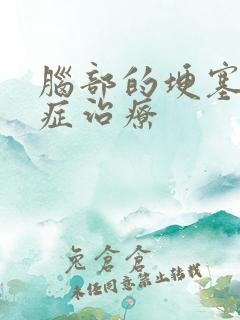 腦部的埂塞
症治療
兔倉倉
未经同意禁止转载